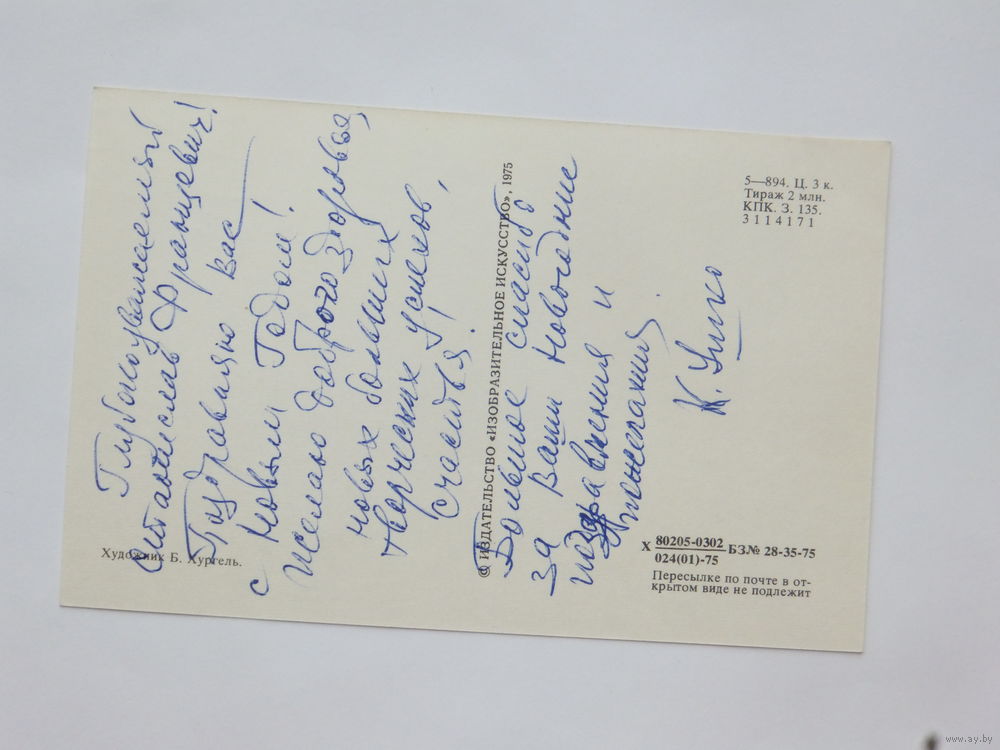 Глубокоуважаемый
Станислав Францевич!
Поздравляю Вас
с Новым Годом!
Желаю доброго здоровья,
новых больших
творческих успехов,
счастья!
Большое спасибо
за Ваши новогодние
поздравления и
пожелания.
К.
Художник Б. Хургель.
© ИЗДАТЕЛЬСТВО «ИЗОБРАЗИТЕЛЬНОЕ ИСКУССТВО», 1975
5—894. Ц. 3 к.
Тираж 2 млн.
КПК. З. 135.
3114171
Х 80205-0302 БЗ№ 28-35-75
024(01)-75
Пересылке по почте в от-
крытом виде не подлежит
www.ay.by